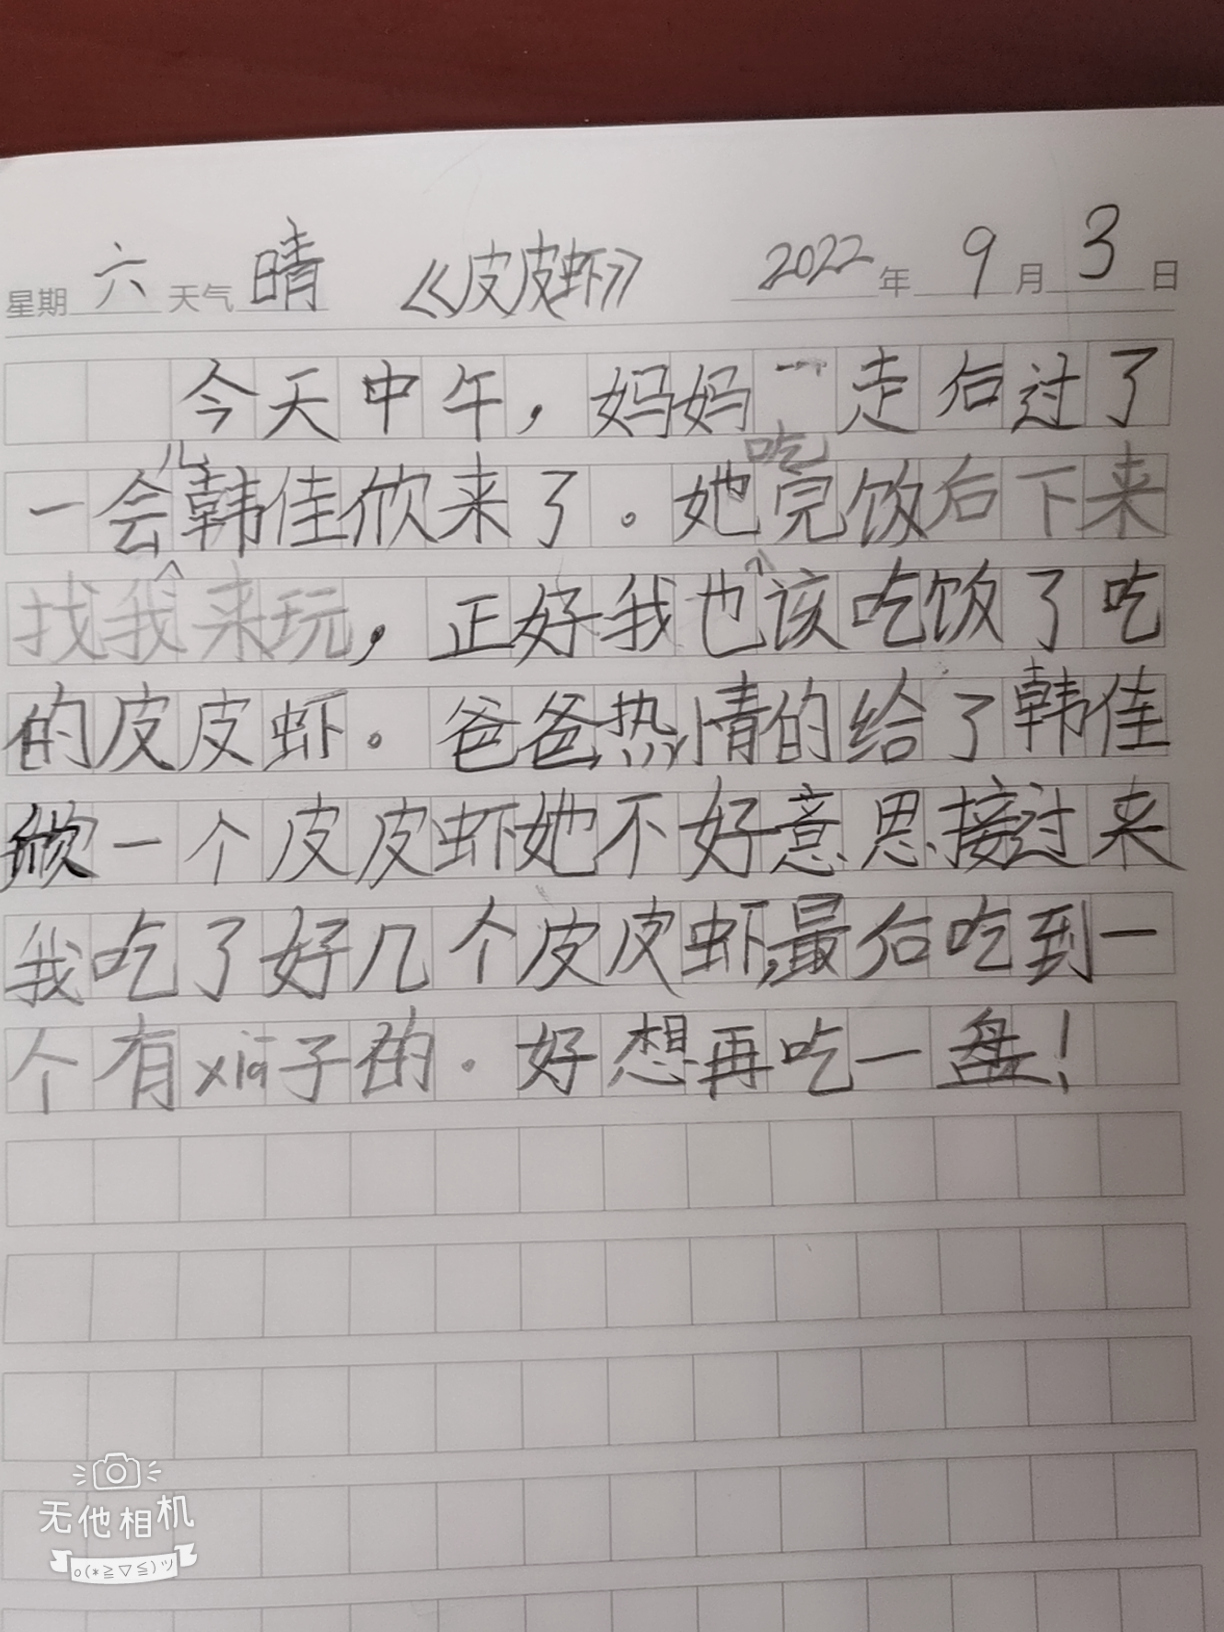 星期六 天气晴 《皮皮虾》 2022年9月3日
今天中午，妈妈走后过了
一会儿韩佳欣来了。她吃完饭后下来
找我来玩，正好我也该吃饭了吃
的皮皮虾。爸爸热情的给了韩佳
欣一个皮皮虾她不好意思接过来
我吃了好几个皮皮虾，最后吃到一
个有xiā子的．好想再吃一盘！
无他相机
o(*≧▽≦)ツ